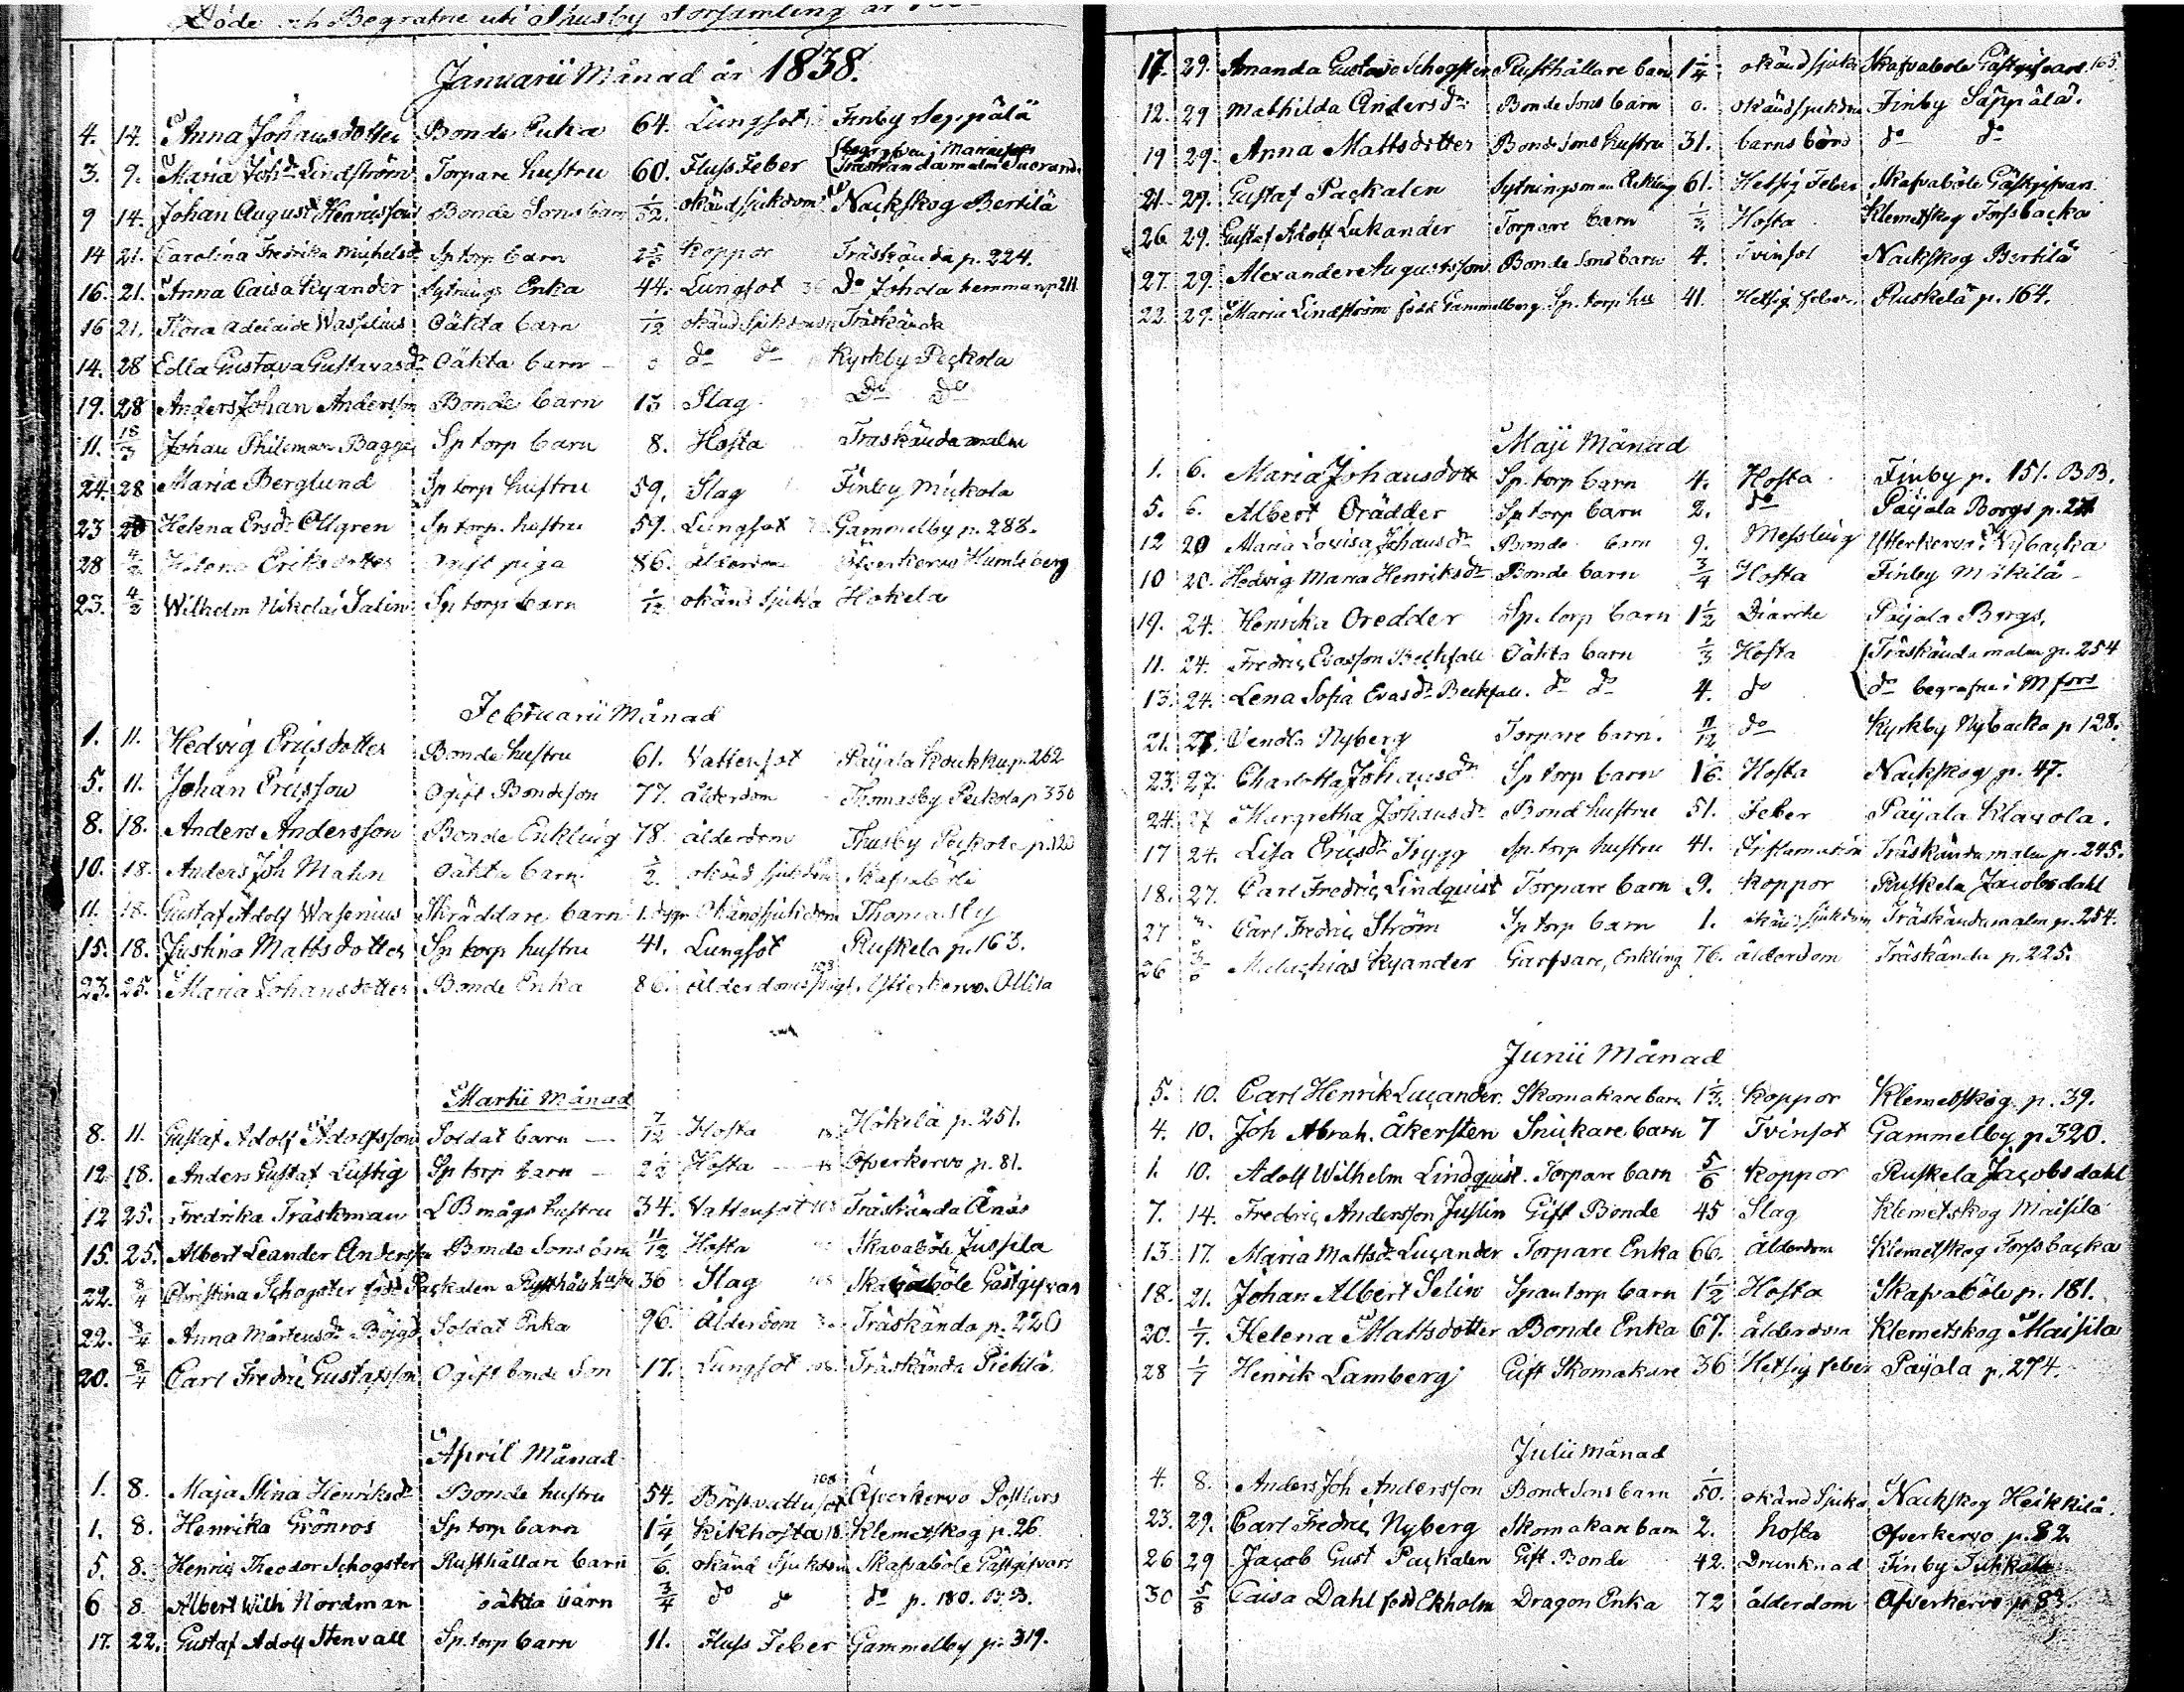 Döde och Begrafne uti Thusby Församling år
Januarii Månad år 1838.
4. 14. Anna Johansdotter Bonde Enka 64. Lungsot Finby Seppälä
3. 9. Maria Joh:dr Lindström Torpare hustru 60. Fluss Feber Träskändamalm
9 14. Johan August Henricsson Bonde Sons barn 1/52. okänd sjukdom Nackskog Bertilä
14 21. Carolina Fredrika Michelsdr Sp torp barn koppor Träskända p. 224.
16. 21. Anna Caisa Kyander Sytnings Enka 44. Lungsot do Johola hemman p 211
16 21. Flora Adelaide Wasselius Oäkta barn 1/12 okänd sjukdom Träskända
14. 28 Edla Gustava Gustavasdr Oäkta barn do do Kyrkby Peckola
19. 28 Anders Johan Andersson Bonde barn 13 Slag Do Do
11. 18/3 Johan Philemon Bagge Sp torp barn 8. Hosta Träskändamalm
24. 28 Maria Berglund Sp torp hustru 59. Slag Finby Mickola
23 28 Helena Ersdr Ollgren Sp torp. hustru 59. Lungsot Gammelby p. 288.
28 4/2 Helena Eriksdotter Ogift piga 86. ålderdom Öfverkervo Humleberg
23. 4/2 Wilhelm Nikolai Salin Sp torp barn 1/12 okänd sjukd Hökelä
Februarii Månad
1. 11. Hedvig Ericsdotter Bonde hustru 61. Vattensot Päyala Koukku p. 262
5. 11. Johan Ericsson Ogift Bondeson 77. ålderdom Thomasby Peckola p 330
8. 18. Anders Andersson Bonde Enkling 78. ålderdom Thusby Peckola p. 120
10. 18. Anders Joh Malm oäkta barn 1/2. okänd sjukdom Skafvaböle
11. 18. Gustaf Adolf Wasenius Skräddare barn 1. dygn Okänd sjukdom Thomasby
15. 18. Justina Mattsdotter Sp torp hustru 41. Lungsot Ruskela p. 163.
23. 25. Maria Johansdotter Bonde Enka 86. ålderdoms Ytterkervo Ollila
Martii Månad
8. 11. Gustaf Adolf Adolfsson Soldat barn 7/12 Hosta Hökilä p. 251.
12 18. Anders Gustaf Lustig Sp torp barn 2 1/2 Hosta Öfverkervo p. 81.
12 25. Fredrika Träskman LB mågs hustru 34. Vattensot Träskända Anäs
15. 25. Albert Leander Andersson Bonde Sons barn 11/12 Hosta Skavaböle Jussila
22. 8/4 Christina Schogster född Packalen Rusthåll hustru 36 Slag Skavaböle Gästgifvars
22. 8/4 Anna Mårtensdr Böjgd Soldat Enka 96. Ålderdom Träskända p. 220
20. 8/4 Carl Fredric Gustafsson Ogift bonde Son 17. Lungsot Träskända Pietilä
April Månad
1. 8. Maja Stina Henriksdr Bonde hustru 54. Bröstvattusot Öfverkervo Postlars
1. 8. Henrika Grönros Sp torp barn 1 1/4 Kikhosta Klemetskog p. 26
5. 8. Henric Theodor Schogster Rusthållare barn 1/6. okänd Sjukdom Skafvaböle Gästgifvars
6 8. Albert Wilh Nordman oäkta barn 3/4 do do do p. 180. B.B.
17. 22. Gustaf Adolf Stenvall Sp. torp barn 11. Fluss Feber Gammelby p. 319.
17. 29. Amanda Gustava Schogster Rusthållare barn 1 1/4 okänd sjukd Skafvaböle Gästgifvars. 165
12. 29 Mathilda Andersdr Bonde Sons barn 0. okänd sjukdom Finby Säppälä.
19 29. Anna Mattsdotter Bonde Sons hustru 31. barns börd do do
21. 29. Gustaf Packalen Sytningsman Enkling 61. Hetsig Feber Skafvaböle Gästgifvar.
26 29. Gustaf Adolf Lukander Torpare barn Hosta Klemetskog Forssbacka
27. 29. Alexander Augustsson Bonde Sons barn 4. Tvinsot Nackskog Bertilä
22. 29. Maria Lindström född Gammelberg. Sp. torp hu 41. Hetsig feber. Ruskelä p. 164.
Maji Månad
1. 6. Maria Johansdott Sp torp barn 4. Hosta Finby p. 151. BB.
5. 6. Albert Orädder Sp torp barn 2. do Päyala Borgs p. 271
12 20 Maria Lovisa Johansdr Bonde barn 9. Messling Ytterkervo Nybacka
10 20. Hedvig Maria Henriksdr Bonde barn 3/4 Hosta Finby Mikilä
19. 24. Henrika Oredder Sp. torp barn 1 1/2 Diarrhe Päyala Borgs,
11. 24. Fredric Evasson Beckfall Oäkta barn 1/3 Hosta Träskändamalm p. 254
13. 24. Lena Sofia Evasdr Beckfall. do do 4. do do begrafne i M fors
21. 27. Vendla Nyberg Torpare barn. 11/12 do Kyrkby Nybacka p 128.
23. 27. Charlotta Johansdr Sp torp barn Hosta Nackskog p. 47.
24. 27 Margretha Johansdr Bond hustru 51. Feber Päyala Klavola.
17 24. Lisa Ericsdr Trygg Sp. torp hustru 41. Inflamation Träskändamalm p. 245.
18. 27. Carl Fredric Lindquist Torpare barn 9. koppor Ruskela Jacobsdahl
27 " Carl Fredric Ström Sp torp barn 1. okänd sjukdom Träskändamalm p. 254.
26 3/6 Malachias Kyander Garfvare, Enkling 76. ålderdom Träskända p. 225.
Junii Månad
5. 10. Carl Henrik Lucander. Skomakare barn 1 1/3. koppor Klemetskog p. 39.
4. 10. Joh Abrah. Åkersten Snickare barn 7 Tvinsot Gammelby p 320.
1. 10. Adolf Wilhelm Lindquist. Torpare barn 5/6 koppor Ruskela Jacobsdahl
7. 14. Fredric Andersson Juslin Gift Bonde 45 Slag Klemetskog Maisila
13. 17. Maria Mattsdr Lucander Torpare Enka 66. Ålderdom Klemetskog Forssbacka
18. 21. Johan Albert Selin Span torp barn 1 1/2 Hosta Skafvaböle p. 181.
20. 1/7. Helena Mattsdotter Bonde Enka 67. ålderdom Klemetskog Maisila
28 1/7 Henrik Lamberg Gift Skomakare 36 Hetsig feber Päyala p. 274.
Julii Månad
4. 8. Anders Joh Andersson Bonde Sons barn 1/50. okänd Sjukd Nackskog Heikkilä.
23. 29. Carl Fredric Nyberg Skomakare barn 2. hosta Öfverkervo p. 82.
26 29 Jacob Gust Packalen Gift Bonde 42. Drunknad Finby Tukkala
30 5/8 Caisa Dahl född Ekholm Dragon Enka 72 ålderdom Öfverkervo p 83.